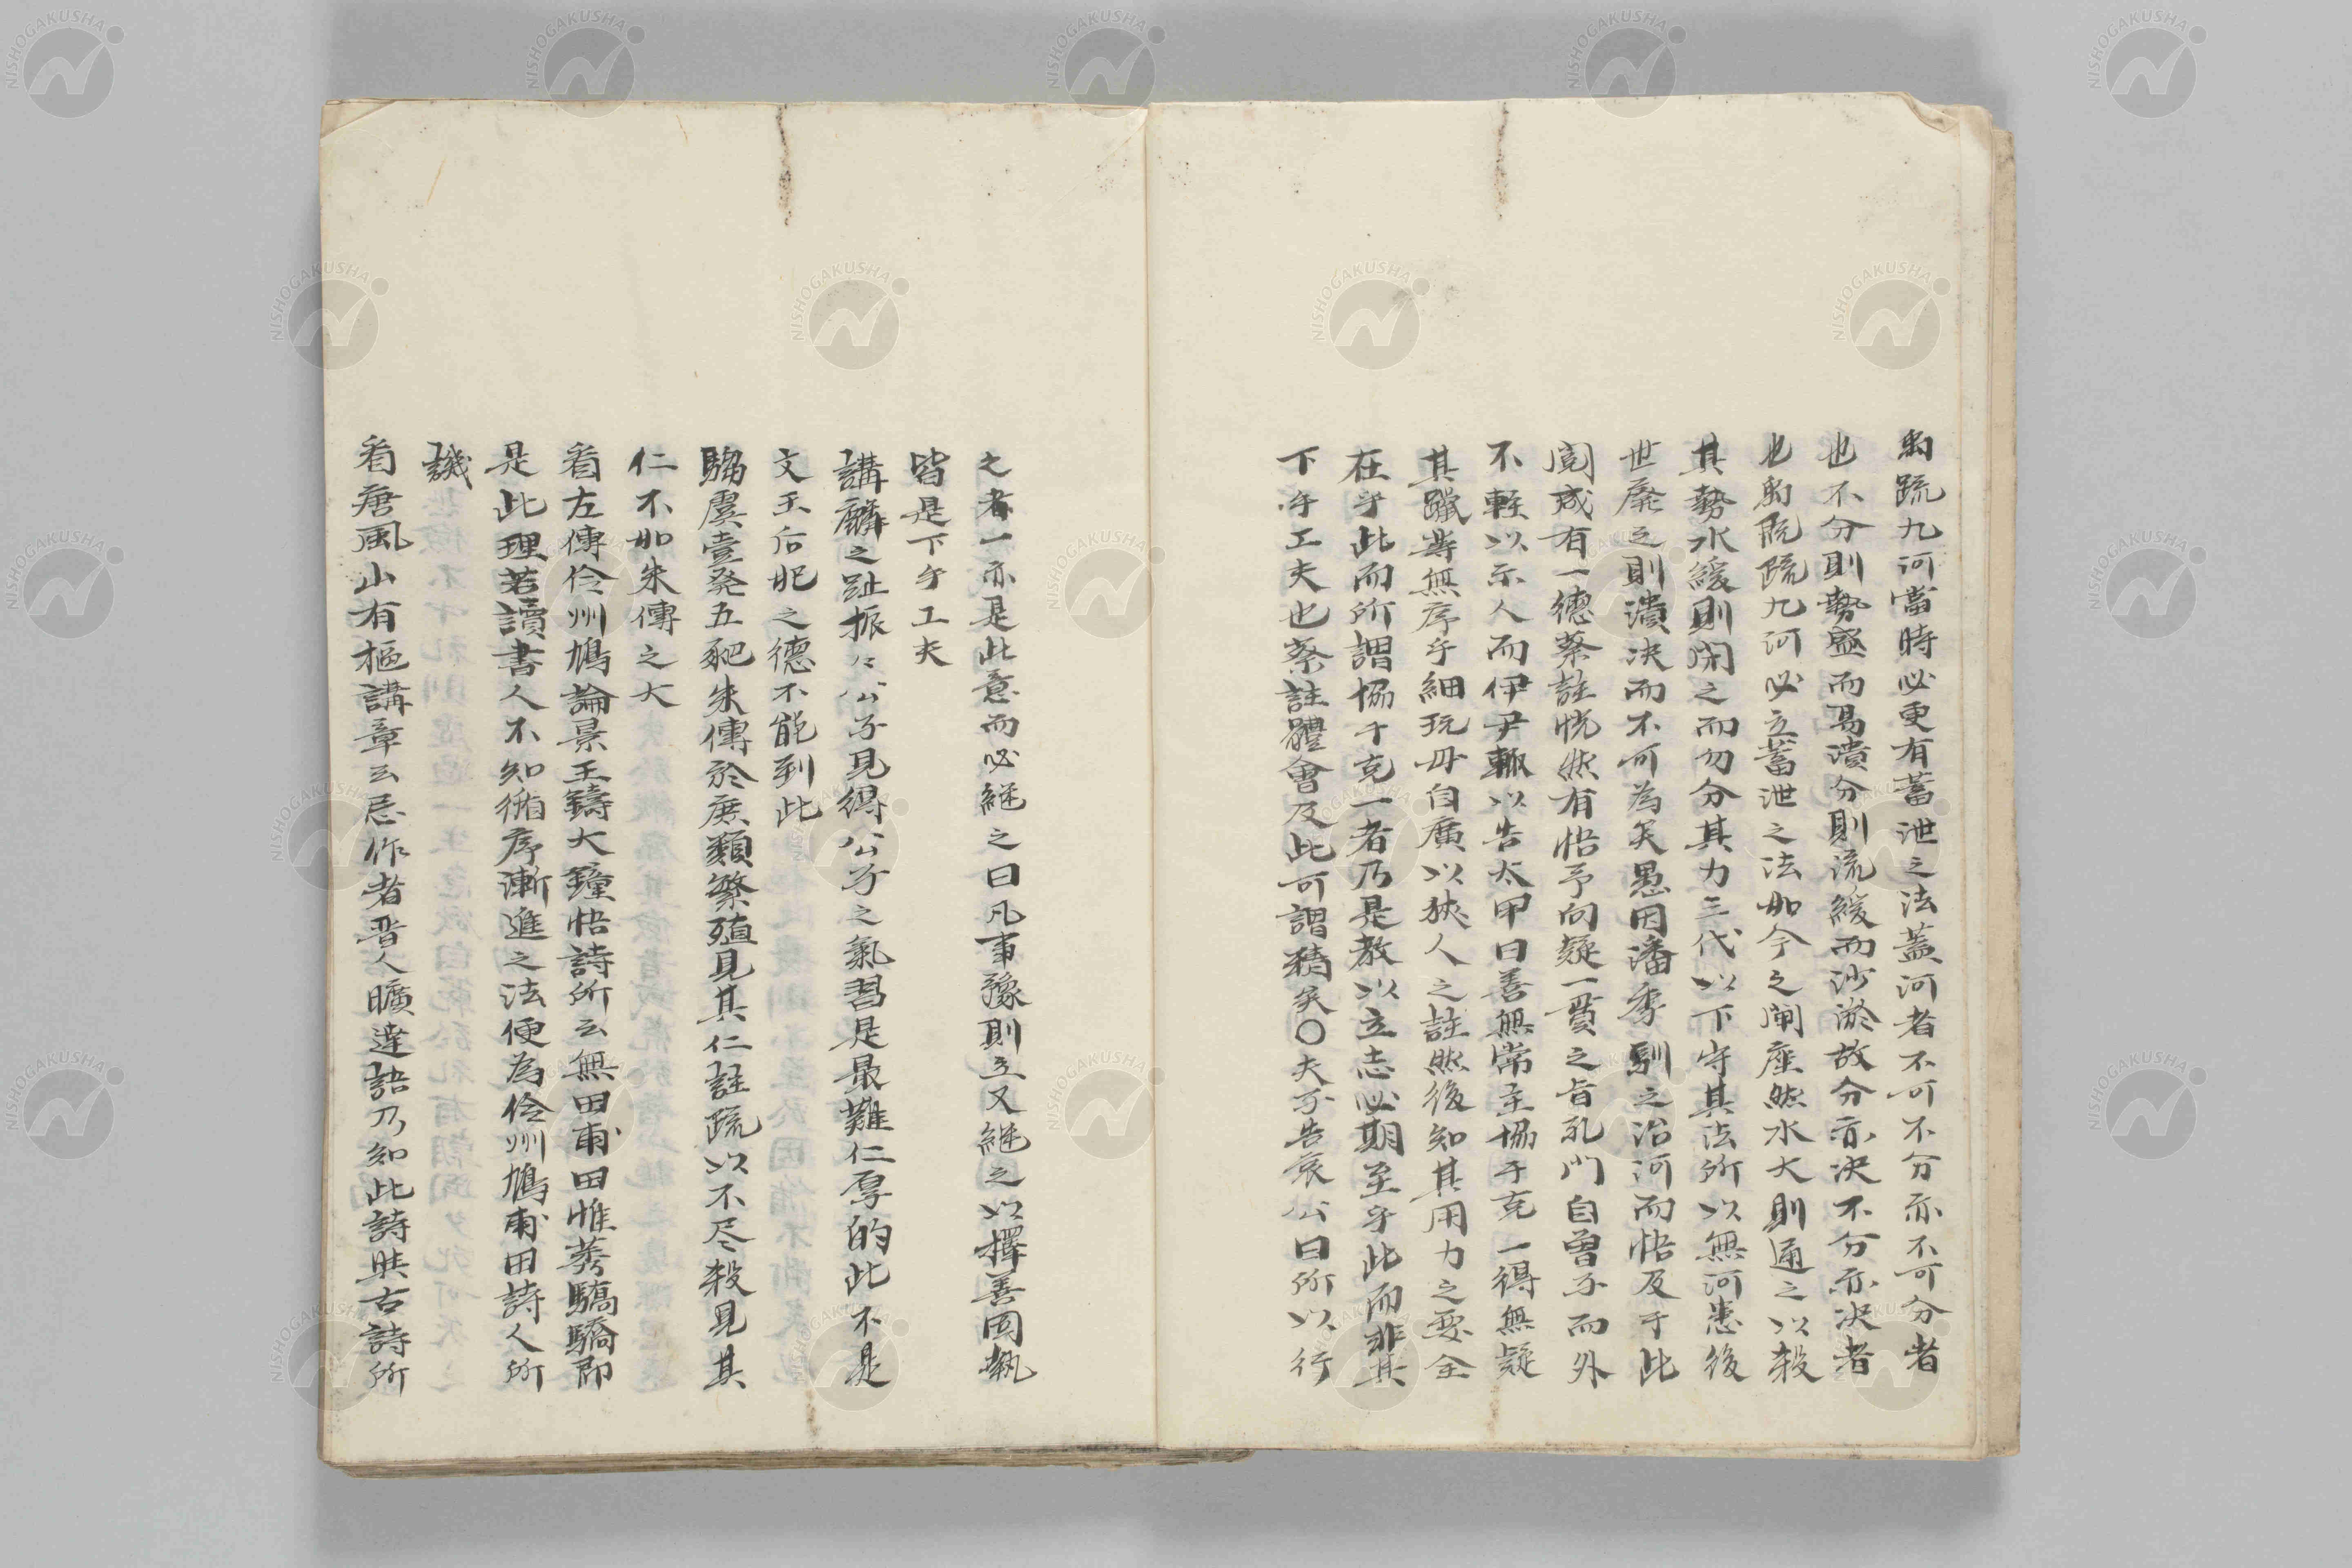 禹疏九河當時必更有蓄泄之法蓋河者不可不分亦不可分者
也不分則勢盛而易潰分則流緩而沙淤故分亦决不分亦决者
也禹既疏九河必立蓄泄之法如今之閘座然水大則通之以殺
其勢水緩則閉之而勿分其力三代以下守其法所以無河患後
世廢之則潰决而不可為矣愚因潘季馴之治河而悟及于此
閱咸有一德蔡註恍然有悟予向疑一貫之旨孔門自曾子而外
不輕以示人而伊尹輒以告太甲曰善無常主協于克一得無疑
其躐等無序乎細玩毋自廣以狹人之註然後知其用力之要全
在乎此而所謂協于克一者乃是教以立志必期至乎此而非其
下手工夫也蔡註體會及此可謂精矣○夫子告哀公曰所以行
之者一亦是此意而必継之曰凡事豫則立又継之以擇善固執
皆是下手工夫
講麟之趾振々公子見得公子之氣習是最難仁厚的此不是
文王后妃之德不能到此
騶虞壹發五豝朱傳於庶類繁殖見其仁註疏以不尽殺見其
仁不如朱傳之大
看左傳伶州鳩論景王鑄大鐘悟詩所云無田甫田惟莠驕驕即
是此理若讀書人不知循序漸進之法便為伶州鳩甫田詩人所
譏
看唐風山有樞講章云忌作者晋人曠達語乃知此詩與古詩所
NISHOGAKUSHA